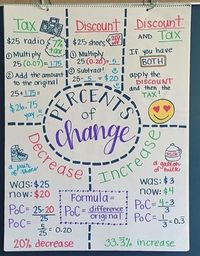 Tax
$25 radio
7% tax
① Multiply
25(0.07) = 1.75
② Add the amount to the original
25 + 1.75 =
$26.75
yay
Discount
$25 shoes
20% off
① Multiply
25(0.20) = 5
② Subtract!
25 - 5 = $20
Discount
AND Tax
If you have
BOTH
apply the
DISCOUNT
and then the
TAX!
PERCENTS
of
change
Decrease
a pair of shoes
was: $25
now: $20
PoC = 25-20
25
5
25
= 0.20
20% decrease
Formula =
PoC = difference
original
Increase
a gallon of milk
was: $3
now: $4
PoC = 4-3
3
PoC = 1
3
= 0.3
33.3% increase